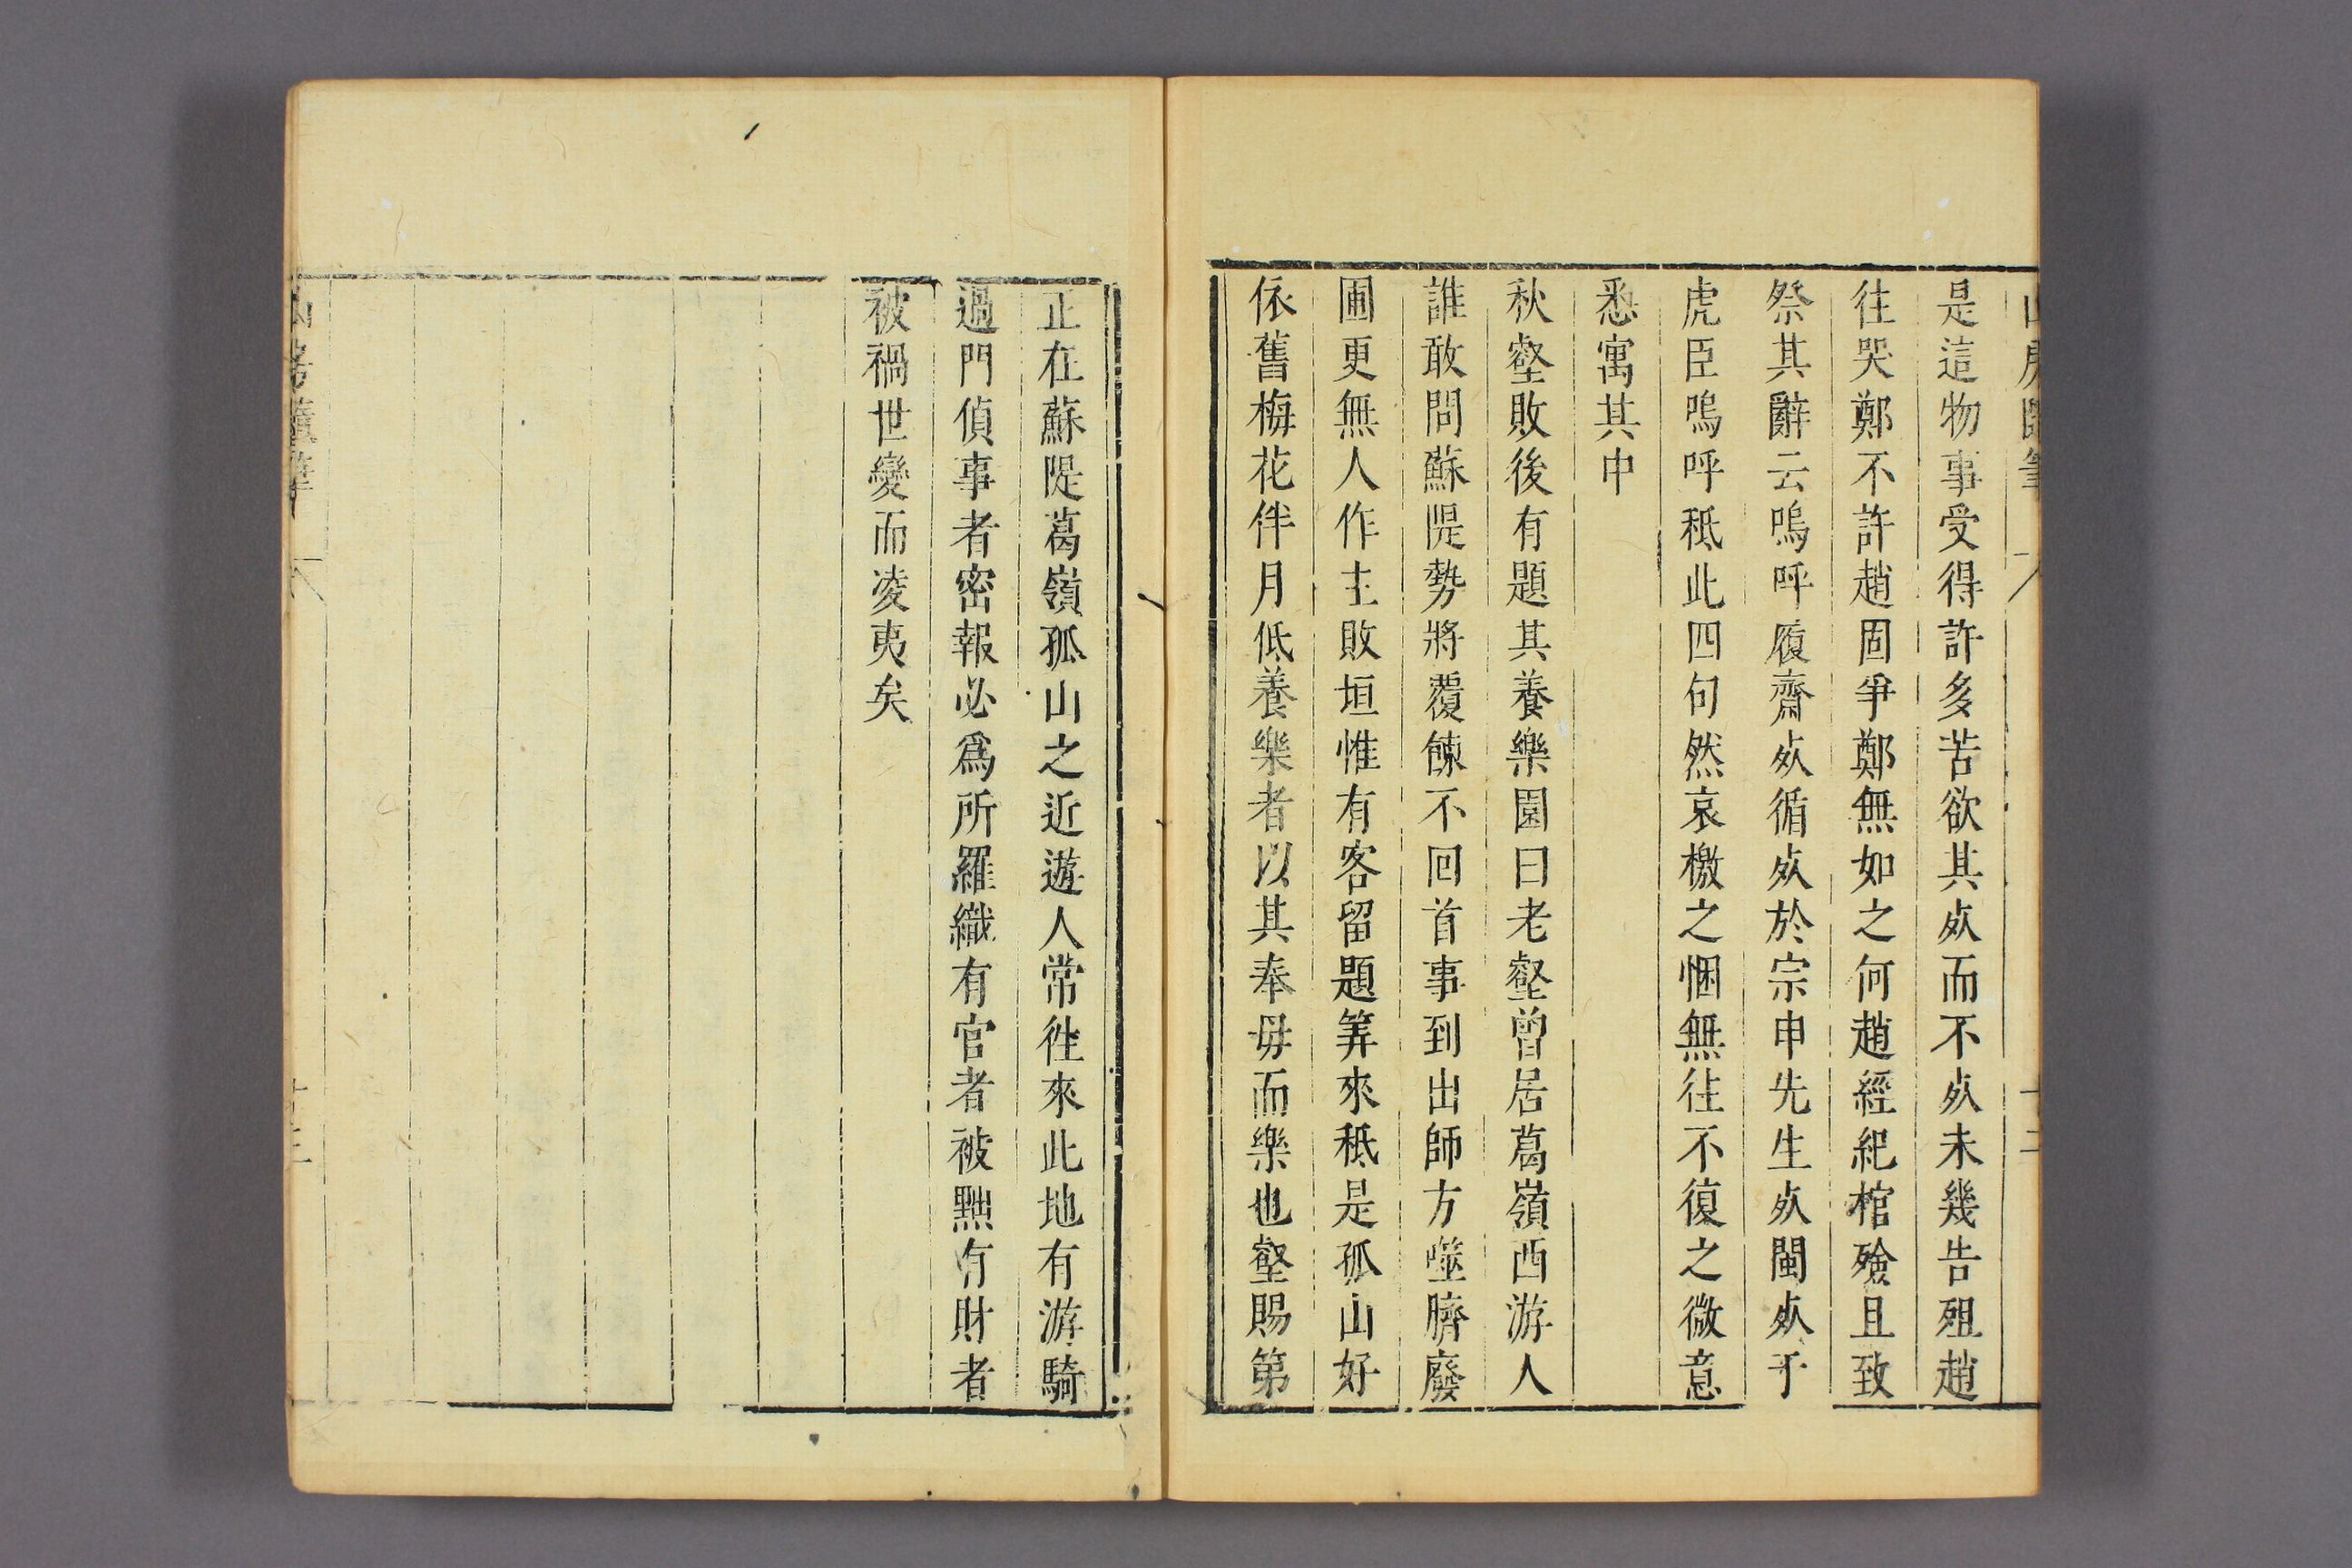 山房隨筆
十二
是這物事受得許多苦欲其死而不死未幾告殂趙
往哭鄭不許趙固爭鄭無如之何趙經紀棺殮且致
祭其辭云嗚呼履齋死循死於宗申先生死閩死于
虎臣嗚呼秪此四句然哀檄之悃無往不復之微意
悉寓其中
秋壑敗後有題其養樂園曰老壑曾居葛嶺西游人
誰敢問蘇隄勢將覆餗不回首事到出師方噬臍廢
圃更無人作主敗垣惟有客留題筭來秪是孤山好
依舊梅花伴月低養樂者以其奉毋而樂也壑賜第
正在蘇隄葛嶺孤山之近遊人常徃來此地有游騎
過門偵事者密報必爲所羅織有官者被黜有財者
被禍世變而凌夷矣
山房隨筆
十三